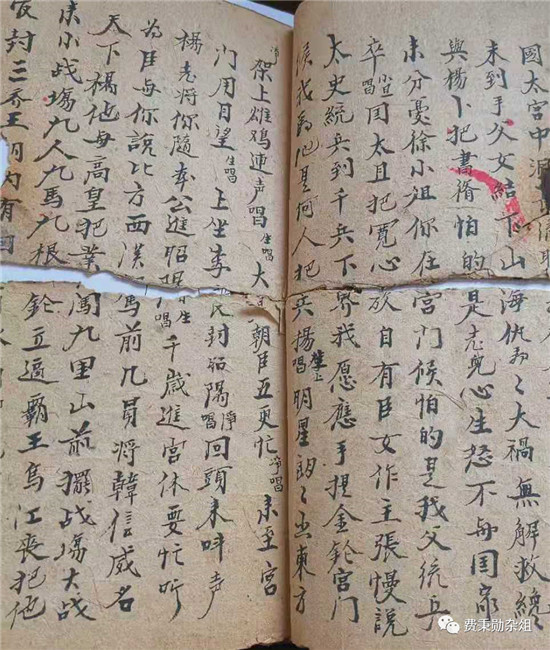 國太宫中
未到手父女結下山海仇〻大禍無解救總
與楊卜把書脩怕的是児心生怒不与国家
未分憂徐小姐你住宫門候怕的是我父統兵
卒小旦唱国太且把寬心放自有臣女作主張慢說
太史統兵到千兵下界我愿應手提金鎗宫门
候我為他是何人把兵揚生上唱明星朗〻出東方
净唱架上雄鸡連声唱生唱大朝臣五更忙净唱来至宫
门用目望生唱上坐李民封韶陽净唱回頭来叫声
楊志將你隨李公進昭陽生唱千歲進宫休要忙听
為臣与你說比方西漢馬前几員將韓信威名
天下揚他与高皇把業闖九里山前擺战塲大战
未小战塲九人九馬九根鎗立逼霸王烏江喪把他
官封三齐王
费秉勋杂俎